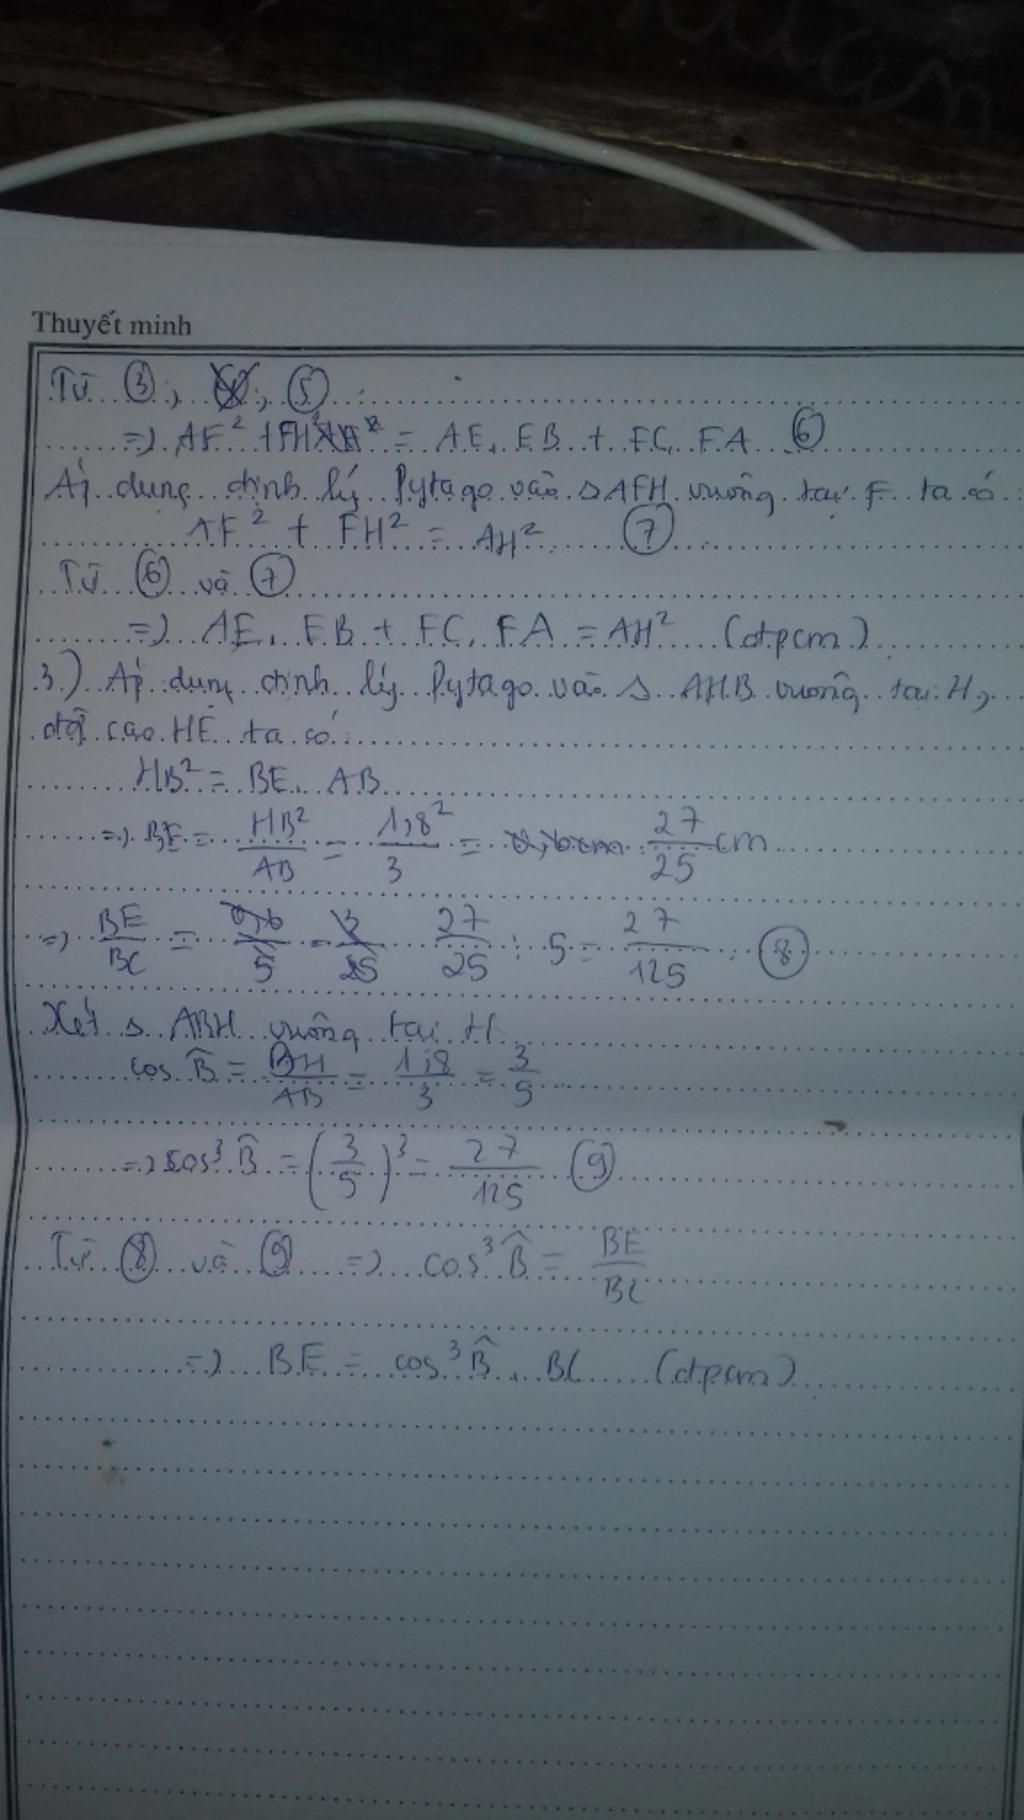 Thuyết minh
Từ ③, ⑤
=> AF² + FH² = AE. EB + FC. FA ⑥
Áp dụng định lý Pytago vào Δ AFH vuông tại F ta có
AF² + FH² = AH² ⑦
Từ ⑥ và ⑦
=> AE. EB + FC. FA = AH² (đpcm)
3) Áp dụng định lý Pytago vào Δ AHB vuông tại H,
đg cao HE ta có
HB² = BE. AB
=> BE = HB²/AB = 1,8²/3 = 27/25 cm
=> BE/BC = 27/25 : 5 = 27/125 ⑧
Xét Δ ABH vuông tại H
cos B̂ = BH/AB = 1,8/3 = 3/5
=> cos³ B̂ = (3/5)³ = 27/125 ⑨
Từ ⑧ và ⑨ => cos³ B̂ = BE/BC
=> BE = cos³ B̂ . BC (đpcm)